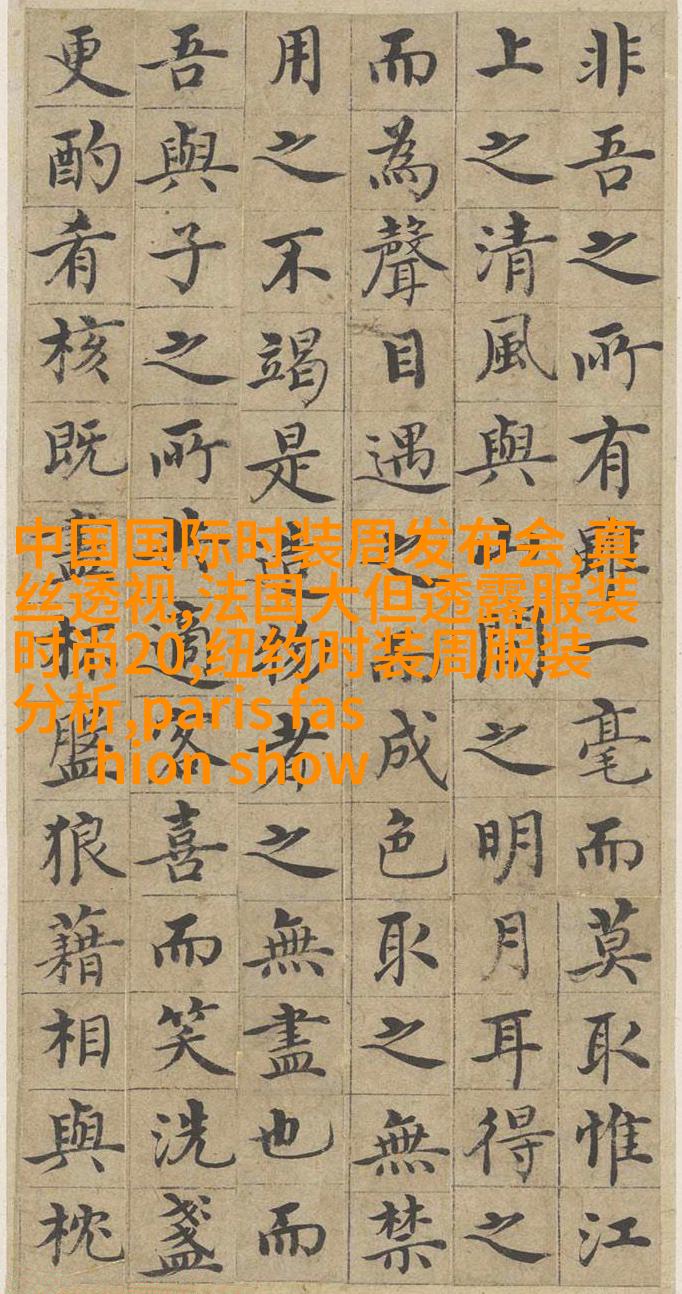 非吾之所有雖一毫而莫取惟江
上之清風與山間之明月耳得之
而為聲目遇之而成色取之無禁
用之不竭是造物者之無盡也而
吾與子之所適客喜而笑洗盞
更酌肴核既盡杯盤狼藉相與枕
中国国际时装周发布会,真
丝透视,法国大但透露服装
时尚20,纽约时装周服装
分析,paris fas
hion show